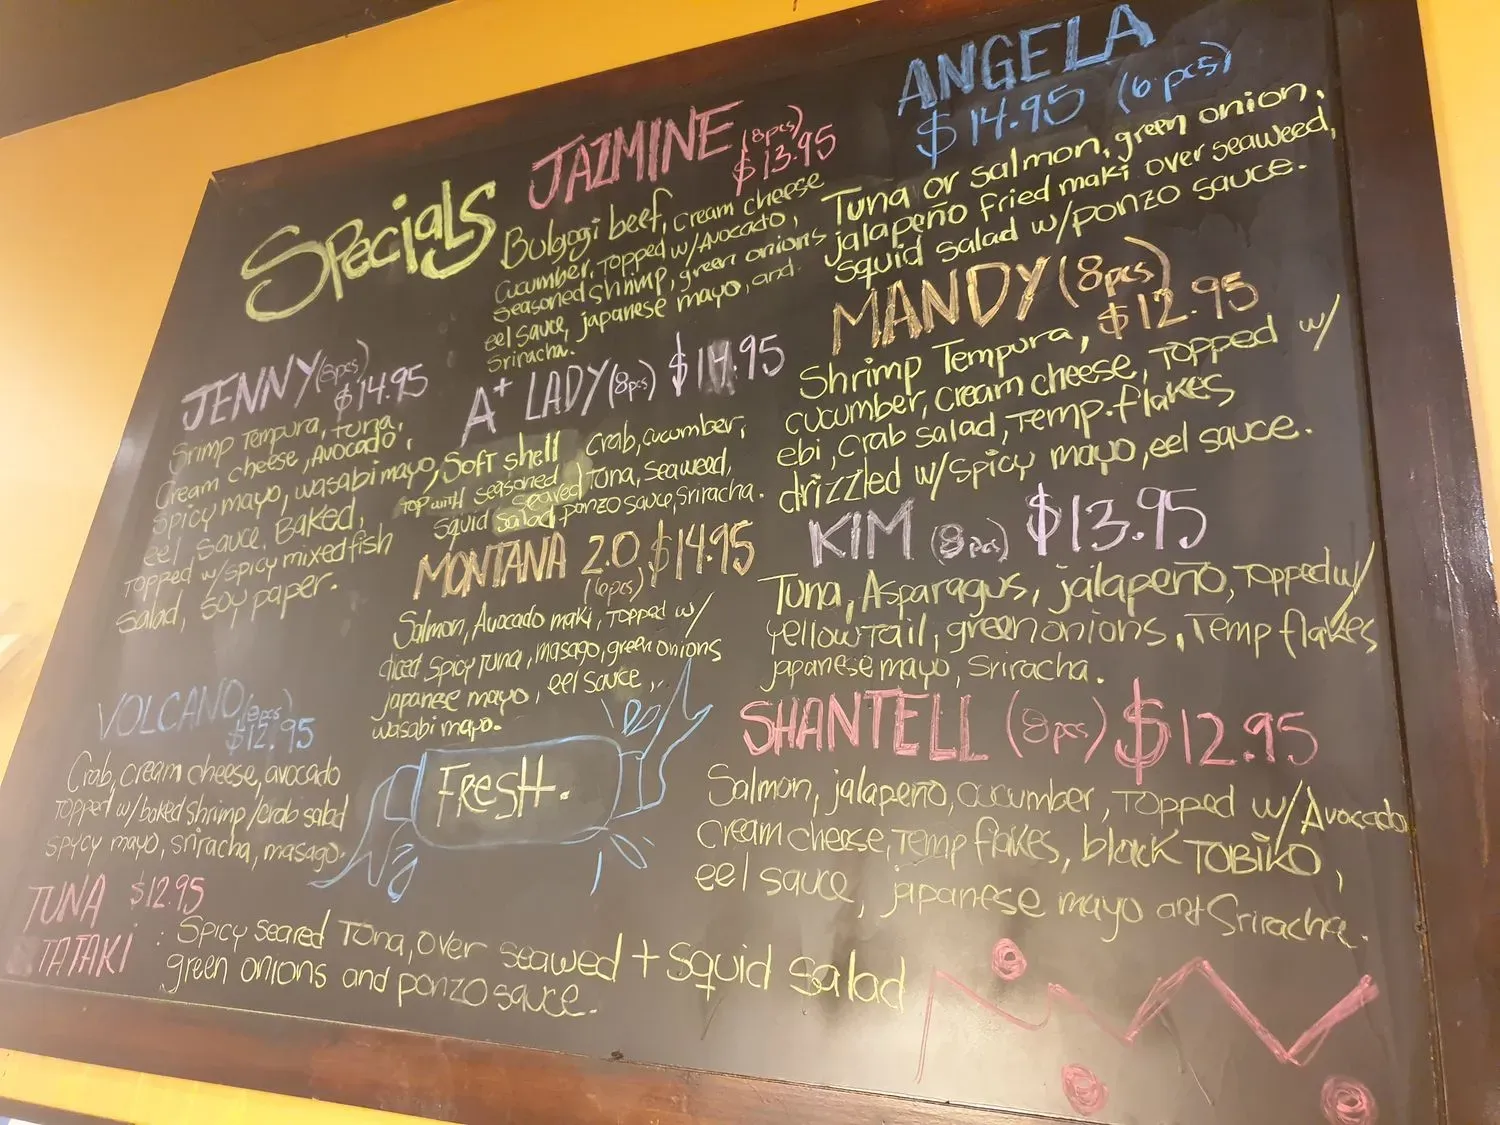 Specials
JAZMINE (8pcs)
$13.95
Bulgogi beef, cream cheese
cucumber, Topped w/Avocado,
seasoned shrimp, green onions
eel sauce, japanese mayo, and
Sriracha.
ANGELA
$14.95 (6 pcs)
Tuna or salmon, green onion,
jalapeño Fried maki over seaweed,
squid salad w/ponzo sauce.
JENNY (8pcs)
$14.95
Srimp Tempura, tuna,
Cream cheese, Avocado,
spicy mayo, wasabi mayo,
eel sauce. Baked,
Topped w/spicy mixed fish
salad, Soy paper.
A+ LADY (8pcs) $14.95
Soft shell Crab, cucumber,
Top with seasoned seared Tuna, seaweed,
squid salad, ponzo sauce, Sriracha.
MANDY (8pcs)
$12.95
Shrimp Tempura,
cucumber, cream cheese, Topped w/
ebi, crab salad, Temp. flakes
drizzled w/spicy mayo, eel sauce.
MONTANA 2.0, $14.95
(6pcs)
Salmon, Avocado maki, Topped w/
diced spicy tuna, masago, green onions
japanese mayo, eel sauce,
wasabi mayo.
KIM (8pcs) $13.95
Tuna, Asparagus, jalapeño, Topped w/
yellowTail, green onions, Temp flakes
japanese mayo, Sriracha.
VOLCANO (8pcs)
$12.95
Crab, cream cheese, avocado
Topped w/baked shrimp/crab salad
spycy mayo, sriracha, masago.
FResH.
SHANTELL (8pcs) $12.95
Salmon, jalapeño, cucumber, Topped w/Avocado
cream cheese, Temp flakes, black TOBIKO,
eel sauce, japanese mayo and Sriracha.
TUNA $12.95
TATAKI : Spicy seared Tuna, over seawed + squid salad
green onions and ponzo sauce.